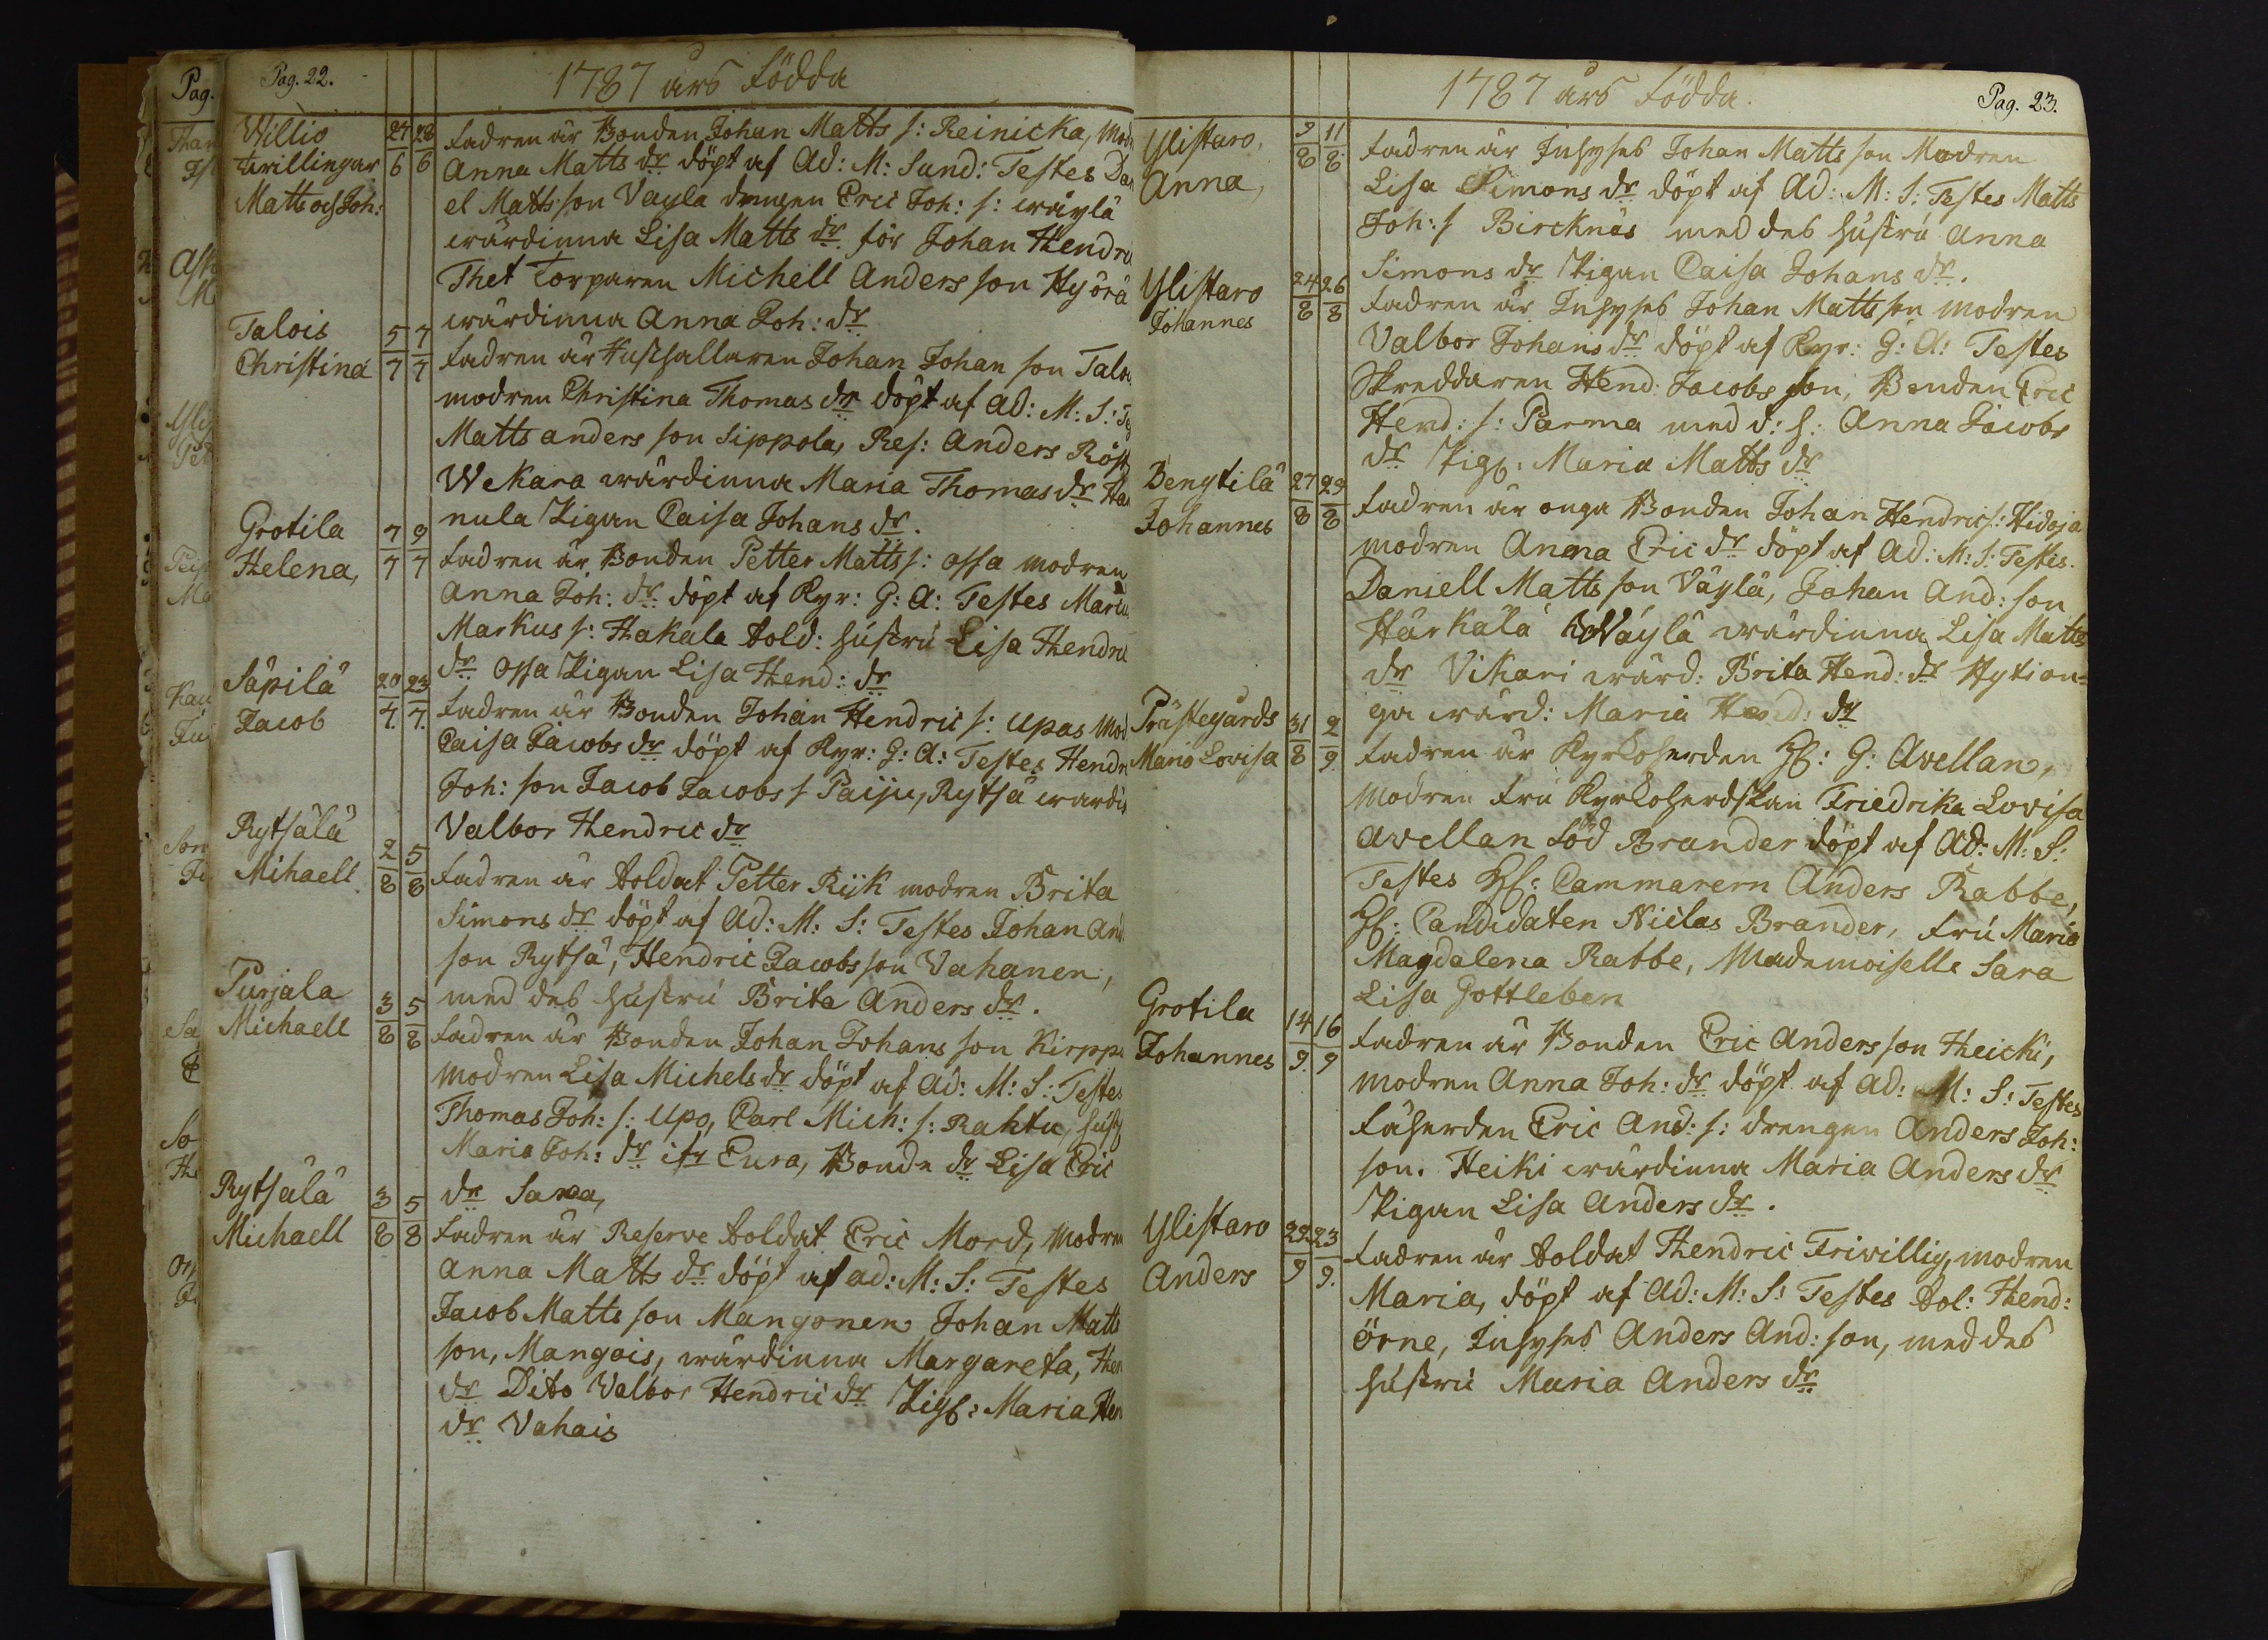 Pag. 22.
1787 års födda
Willio 27/6 28/6 fadren är Bonden Johan Matts s: Reinicka, Mod
twillingar Anna Matts dr döpt af Ad: M: Sund: Testes Dan
Matts och Joh: el Matts son Vayla drengen Eric Joh: s: wäylä
wärdinna Lisa Matts dr för Johan Hendric
Thet Torparen Michell Anders son Hyörä
wärdinna Anna Joh: dr
Talois 5/7 7/7 fadren är Hushållaren Johan Johan son Talo
Christina modren Christina Thomas dr döpt af Ad: M: S: Te
Matts anders son Sippola, Res: Anders Röst
Wekara wärdinna Maria Thomas dr Ha
nula Pigan Caisa Johans dr.
Grotila 7/7 9/7 fadren är Bonden Petter Matts s: ossa modren
Helena, Anna Joh: dr döpt af Kyr: G: A: Testes Mari
Markus s: Hakala Sold: hustru Lisa Hendric
dr Ossa Pigan Lisa Hend: dr
Säpilä 20/7 23/7 fadren är Bonden Johan Hendric s: Upas Mod
Jacob Caisa Jacobs dr döpt af Kyr: G: A: Testes Hendr
Joh: son Jacob Jacobs s Paiju, Rytsä wärdi
Valbor Hendric dr
Rytsälä 2/8 5/8 fadren är Soldat Petter Rijk modren Brita
Mihaell Simons dr döpt af Ad: M: S: Testes Johan And
son Rytsä, Hendric Jacobs son Vahanen,
med des hustru Brita Anders dr.
Purjala 3/8 5/8 fadren är Bonden Johan Johans son Kirppu
Michaell Modren Lisa Michels dr döpt af Ad: M: S: Testes
Thomas Joh: s: Upo, Carl Mich: s: Rahtu, hust
Maria Joh: dr ifr Eura, Bonde dr Lisa Eric
dr Sawa,
Rytsälä 3/8 5/8 fadren är Reserve Soldat Eric Mord, Modren
Michaell Anna Matts dr döpt af ad: M: S: Testes
Jacob Matts son Mangonen Johan Matts
son, Mangois, wärdinna Margareta, Hen
dr Dito Valbor Hendric dr Pig: Maria Hen
dr Vahais
1787 års födda. Pag. 23.
Ylistaro, 9/8 11/8 fadren är Inhyses Johan Matts son Modren
Anna, Lisa Simons dr döpt af Ad: M: S: Testes Matts
Joh: s Bircknäs med des hustru Anna
Simons dr Pigan Caisa Johans dr.
Ylistaro 24/8 26/8 fadren är Inhyses Johan Matts son modren
Johannes Valbor Johans dr döpt af Kyr: G: A: Testes
Skreddaren Hend: Jacobs son, Bonden Eric
Hend: s: Parma med d: h: Anna Jacobs
dr Pig: Maria Matts dr
Bengtilä 27/8 29/8 fadren är unga Bonden Johan Hendric s: Hidoja
Johannes modren Anna Eric dr döpt af Ad: M: S: Testes.
Daniell Matts son Väylä, Johan And: son
Härkälä Wäylä wärdinna Lisa Matts
dr Vikari wärd: Brita Hend: dr Hytion=
ga wärd: Maria Hend: dr
Prästegårds 31/8 2/9 fadren är Kyrkoherden H: G: Avellan,
Maria Lovisa Modren fru Kyrkoherdskan Friedrika Lovisa
Avellan född Brander döpt af Ad: M: S:
Testes H: Cammarern Anders Rabbe,
H: Candidaten Niclas Brander, fru Maria
Magdalena Rabbe, Mademoiselle Sara
Lisa Gottleben
Grotila 14/9 16/9 fadren är Bonden Eric Anders son Heicki,
Johannes modren Anna Joh: dr döpt af Ad: M: S: Testes
Fäherden Eric And: s: drengen Anders Joh:
son. Heiki wärdinna Maria Anders dr
Pigan Lisa Anders dr.
Ylistaro 22/9 23/9 fadren är Soldat Hendric Friwillig, modren
Anders Maria, döpt af Ad: M: S: Testes Sol: Hend:
örne, Inhyses Anders And: son, med des
hustru Maria Anders dr